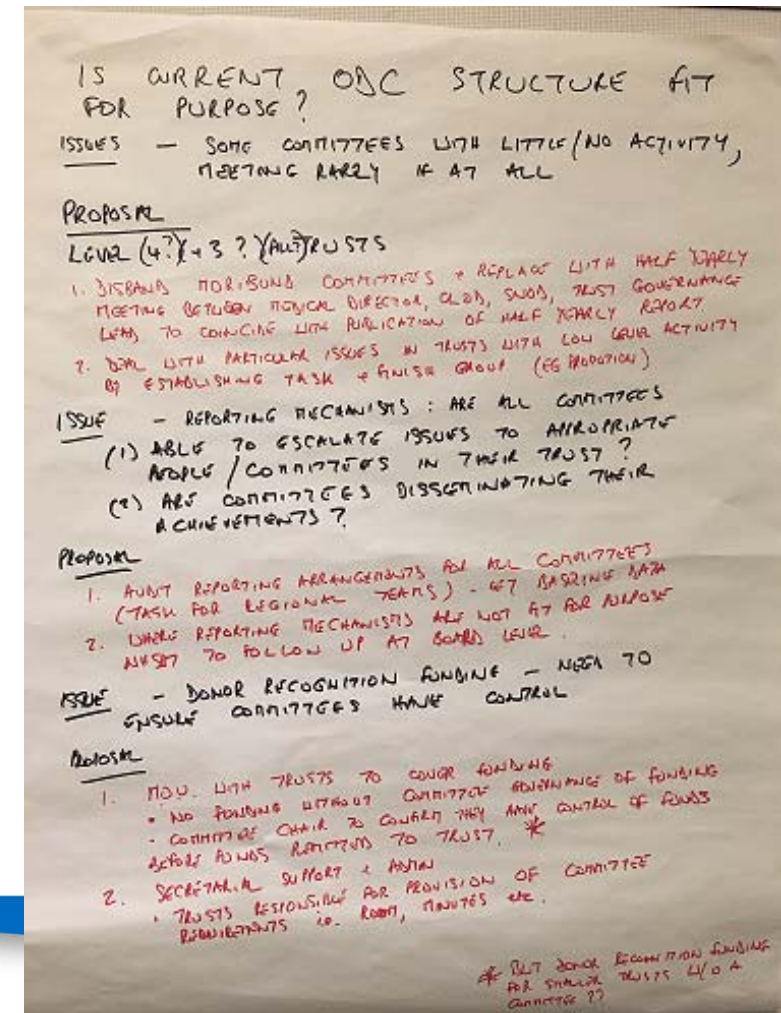 IS CURRENT, ODC STRUCTURE FIT
FOR PURPOSE?
ISSUES — SOME COMMITTEES WITH LITTLE/NO ACTIVITY,
MEETING RARELY IF AT ALL
PROPOSAL
LEVEL (4?)(+3?)(ALL?)TRUSTS
1. DISBAND MORIBUND COMMITTEES + REPLACE WITH HALF YEARLY
MEETING BETWEEN MEDICAL DIRECTOR, CLOD, SNOD, TRUST GOVERNANCE
LEAD TO COINCIDE WITH PUBLICATION OF HALF YEARLY REPORT.
2. DEAL WITH PARTICULAR ISSUES IN TRUSTS WITH LOW LEVEL ACTIVITY
BY ESTABLISHING TASK + FINISH GROUP (EG PROMOTION)
ISSUE — REPORTING MECHANISMS: ARE ALL COMMITTEES
(1) ABLE TO ESCALATE ISSUES TO APPROPRIATE
PEOPLE/COMMITTEES IN THEIR TRUST?
(2) ARE COMMITTEES DISSEMINATING THEIR
ACHIEVEMENTS?
PROPOSAL
1. AUDIT REPORTING ARRANGEMENTS FOR ALL COMMITTEES
(TASK FOR REGIONAL TEAMS) - GET BASELINE DATA
2. WHERE REPORTING MECHANISMS ARE NOT FIT FOR PURPOSE
NHSBT TO FOLLOW UP AT BOARD LEVEL.
ISSUE — DONOR RECOGNITION FUNDING — NEED TO
ENSURE COMMITTEES HAVE CONTROL
PROPOSAL
1. MOU WITH TRUSTS TO COVER FUNDING
• NO FUNDING WITHOUT COMMITTEE GOVERNANCE OF FUNDING
- COMMITTEE CHAIR TO CONFIRM THEY HAVE CONTROL OF FUNDS
BEFORE FUNDS REMITTED TO TRUST. *
2. SECRETARIAL SUPPORT + ADMIN
• TRUSTS RESPONSIBLE FOR PROVISION OF COMMITTEE
REQUIREMENTS i.e. ROOM, MINUTES etc.
* BUT DONOR RECOGNITION FUNDING
FOR SMALLER TRUSTS W/O A
COMMITTEE ??